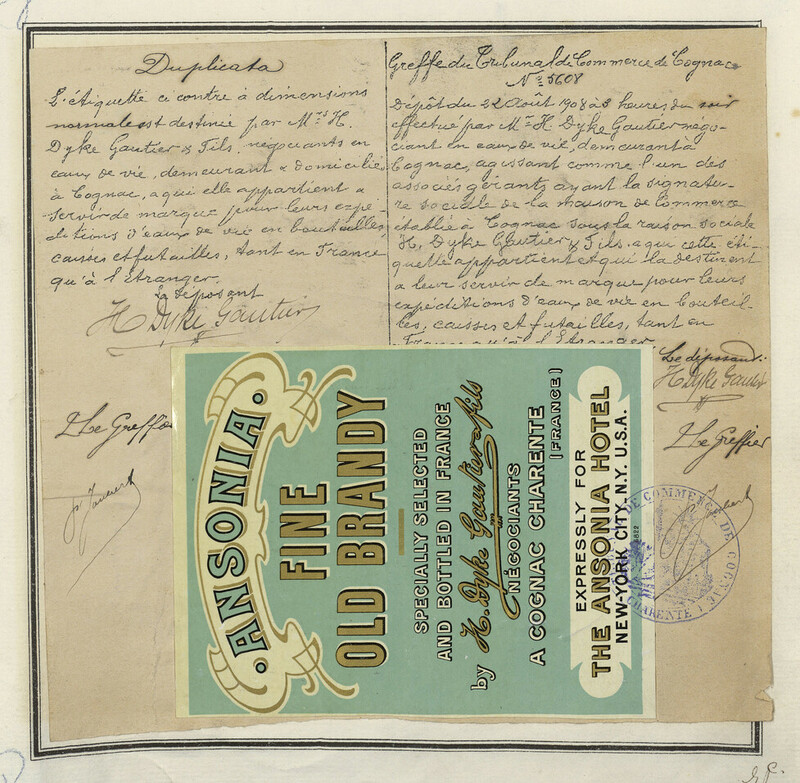 Duplicata
L'étiquette ci contre à dimensions
normales est destinée par Mrs H.
Dyke Gautier & Fils, négociants en
eaux de vie, demeurant & domiciliés
à Cognac, a qui elle appartient a
servir de marque pour leurs expé-
ditions d'eaux de vie en bouteilles,
caisses et futailles, tant en France
qu'à l'Etranger.
Le déposant
H Dyke Gautier
Le Greffier
Greffe du Tribunal de Commerce de Cognac
No 5608
Dépôt du 22 Août 1908 à 3 heures du soir
effectué par Mr H. Dyke Gautier négo-
ciant en eaux de vie, demeurant à
Cognac, agissant comme l'un des
associés gérants ayant la signatu-
re sociale de la maison de Commerce
établie à Cognac sous la raison sociale
H. Dyke Gautier & Fils, a qui cette éti-
quette appartient et qui la destinent
a leur servir de marque pour leurs
expéditions d'eaux de vie en bouteil-
les, caisses et futailles, tant en
France qu'à l'Etranger
Le déposant
H Dyke Gautier
Le Greffier
ANSONIA.
FINE
OLD BRANDY
SPECIALLY SELECTED
AND BOTTLED IN FRANCE
by H. Dyke Gautier & fils
NÉGOCIANTS
A COGNAC CHARENTE
(FRANCE)
EXPRESSLY FOR
THE ANSONIA HOTEL
NEW-YORK CITY, N.Y. U.S.A.
DE COMMERCE DE COGNAC
CHARENTE